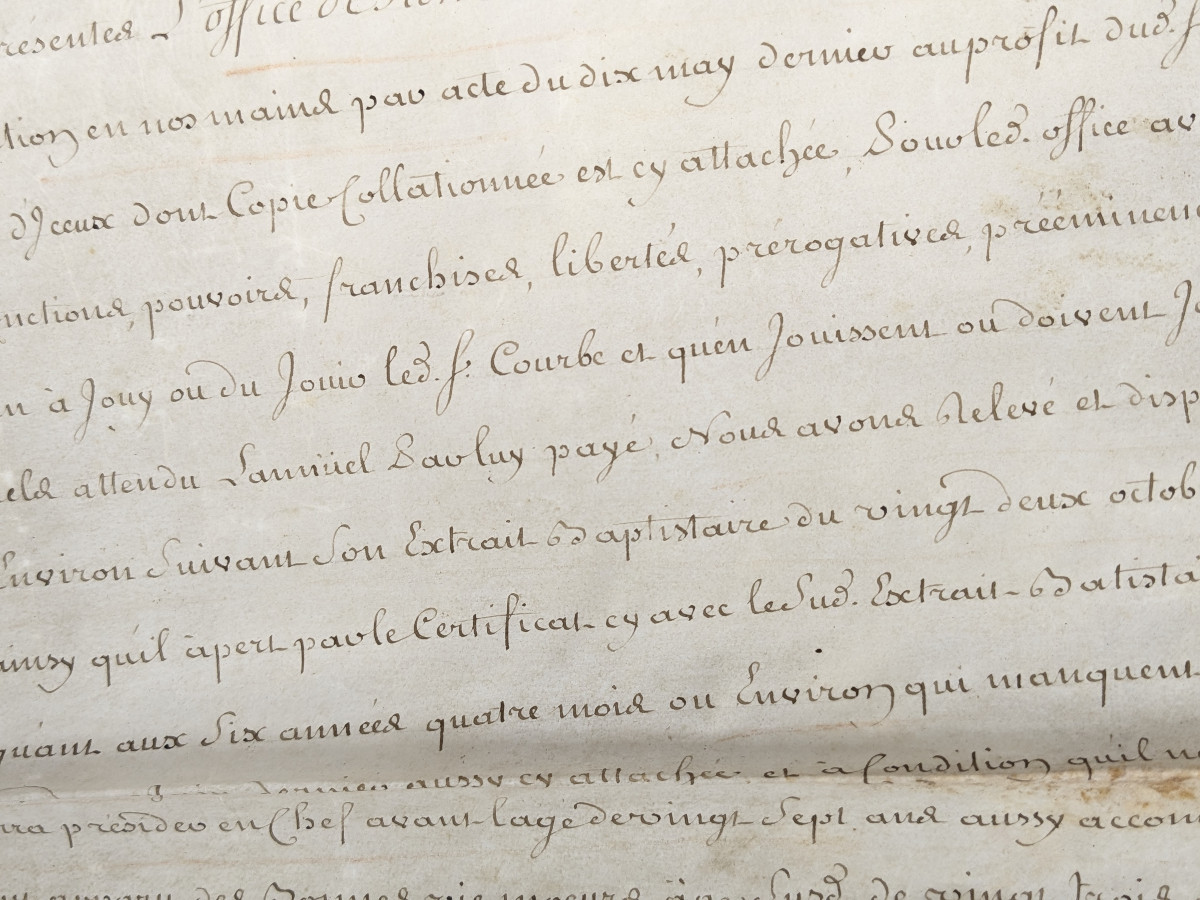 resentes L'office
tion en nos mains par acte du dix may dernier au profit dud. S
d'Iceux dont Copie Collationnée est cy attachée, Pour led. office av
nctions, pouvoirs, franchises, libertés, prérogatives, prééminenc
à Jouy ou du Jouir led. Sr. Courbe et qu'en Jouissent ou doivent Jo
els attendu payé, Nous avons Relevé et disp
Environ Suivant Son Extrait Baptistaire du vingt deux octob
ainsy qu'il àpert par le Certificat cy avec le Sud. Extrait Batista
quant aux Six années quatre mois ou Environ qui manquent
dernier aussy cy attachée et à Condition qu'il n
rra présider en Chef avant lage de vingt Sept ans aussy accom
des Bonnes vie moeurs Susd. de vingt trois